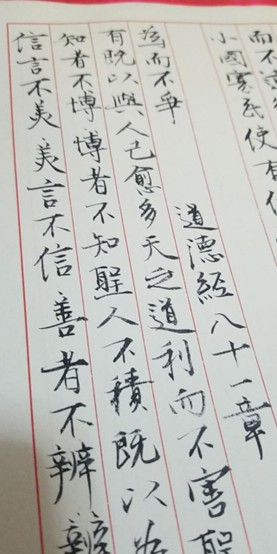 信言不美美言不信善者不辨
知者不博博者不知聖人不積既以為
有既以與人己愈多天之道利而不害聖
為而不爭
道德經八十一章
小國寡民使有
而不